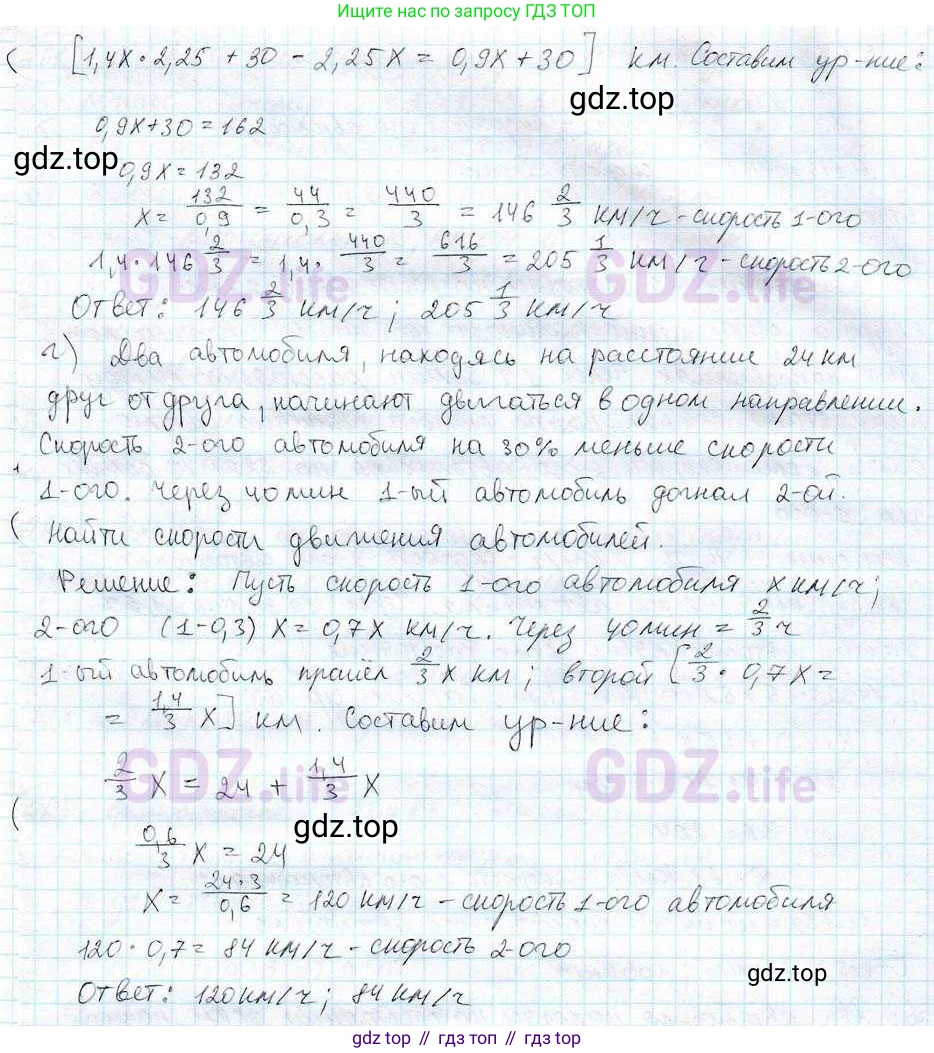 Ищите нас по запросу ГДЗ ТОП
[1,4x·2,25 + 30 - 2,25x = 0,9x + 30] км. Составим ур-ние:
gdz.top
0,9x+30 = 162
gdz.top
0,9x = 132
x = 132/0,9 = 44/0,3 = 440/3 = 146 2/3 км/ч - скорость 1-ого
1,4·146 2/3 = 1,4·440/3 = 616/3 = 205 1/3 км/ч - скорость 2-ого
GDZ.life GDZ.life
Ответ: 146 2/3 км/ч; 205 1/3 км/ч
г) Два автомобиля, находясь на расстоянии 24 км
друг от друга, начинают двигаться в одном направлении.
Скорость 2-ого автомобиля на 30% меньше скорости
1-ого. Через 40 мин 1-ый автомобиль догнал 2-ой.
Найти скорости движения автомобилей.
Решение: Пусть скорость 1-ого автомобиля x км/ч;
2-ого (1-0,3)x = 0,7x км/ч. Через 40 мин = 2/3 ч
1-ый автомобиль прошёл 2/3 x км; второй [2/3 · 0,7x =
= 1,4/3 x] км. Составим ур-ние:
GDZ.life GDZ.life
2/3 x = 24 + 1,4/3 x
gdz.top
0,6/3 x = 24
x = 24·3/0,6 = 120 км/ч - скорость 1-ого автомобиля
120 · 0,7 = 84 км/ч - скорость 2-ого
gdz.top
Ответ: 120 км/ч; 84 км/ч
gdz top // гдз топ // gdz top // гдз топ